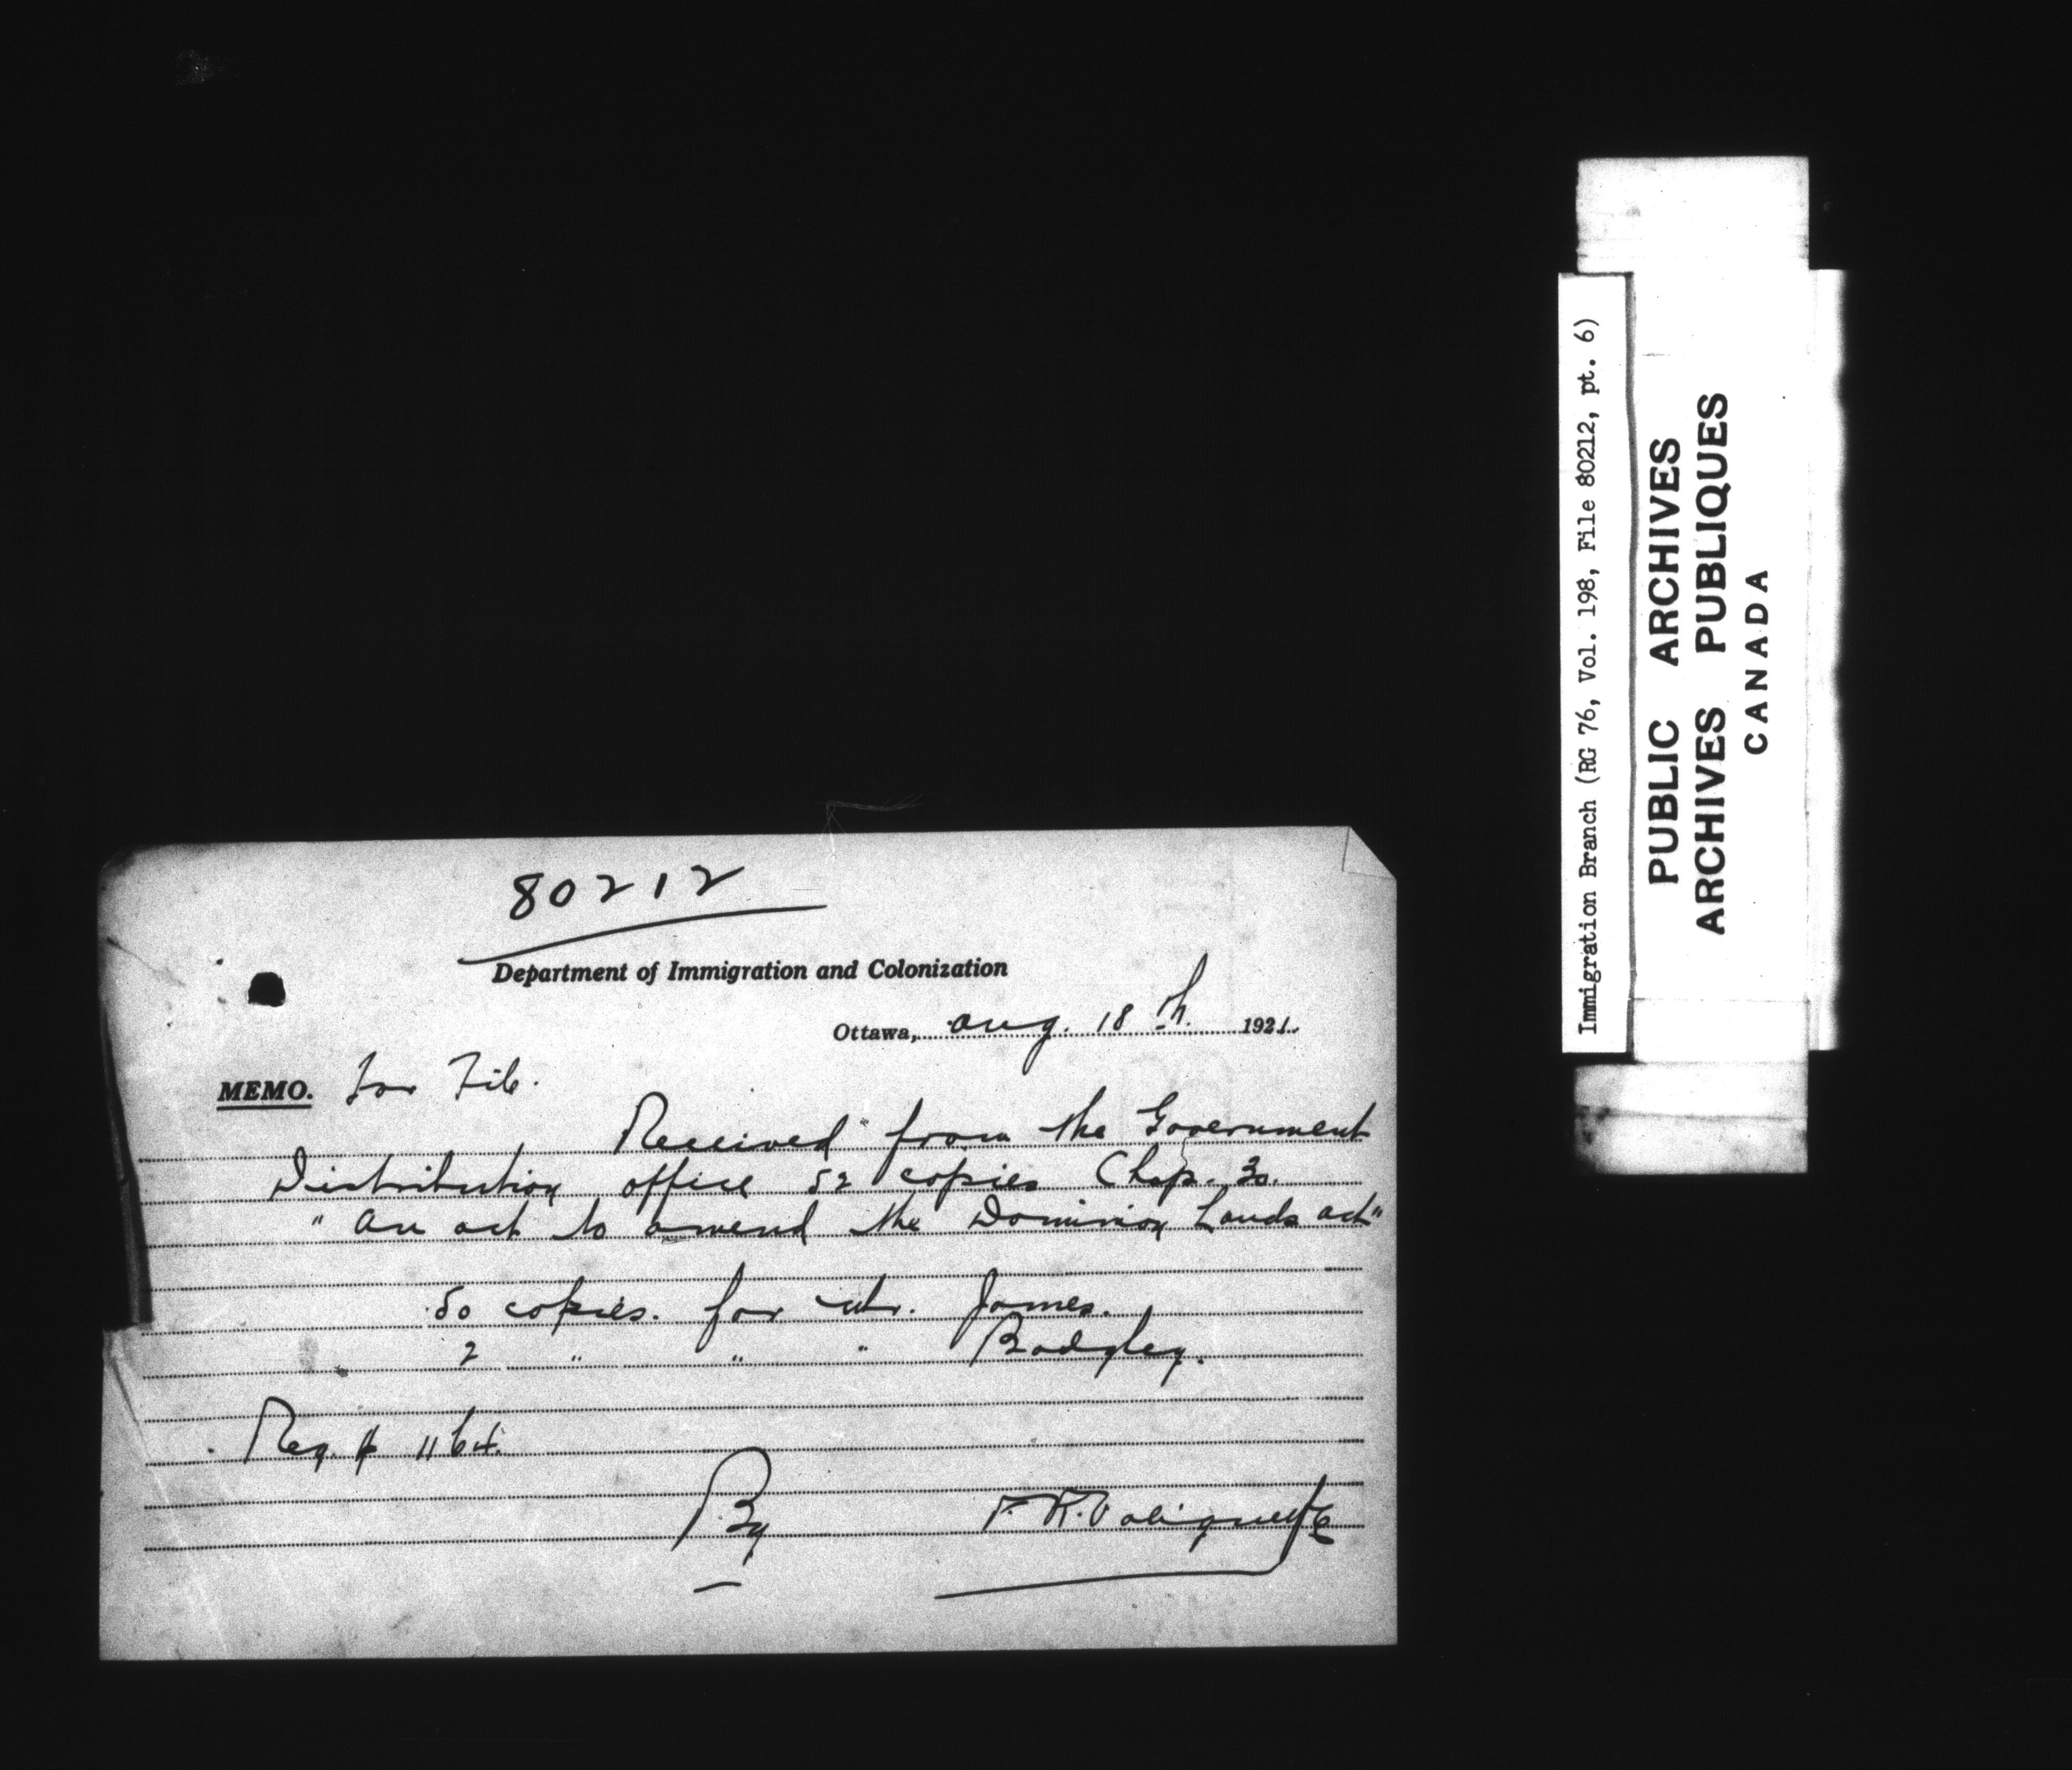 80212
Department of Immigration and Colonization
Ottawa, Aug. 18th. 1921.
MEMO. for File.
Received from the Government
Distribution office 52 copies Chap. 30.
" An act to amend the Dominion Lands act"
50 copies. for Mr. James.
2 " " " Badgley.
Req. # 1164.
F. R. Valiquette
Immigration Branch (RG 76, Vol. 198, File 80212, pt. 6)
PUBLIC ARCHIVES
ARCHIVES PUBLIQUES
CANADA